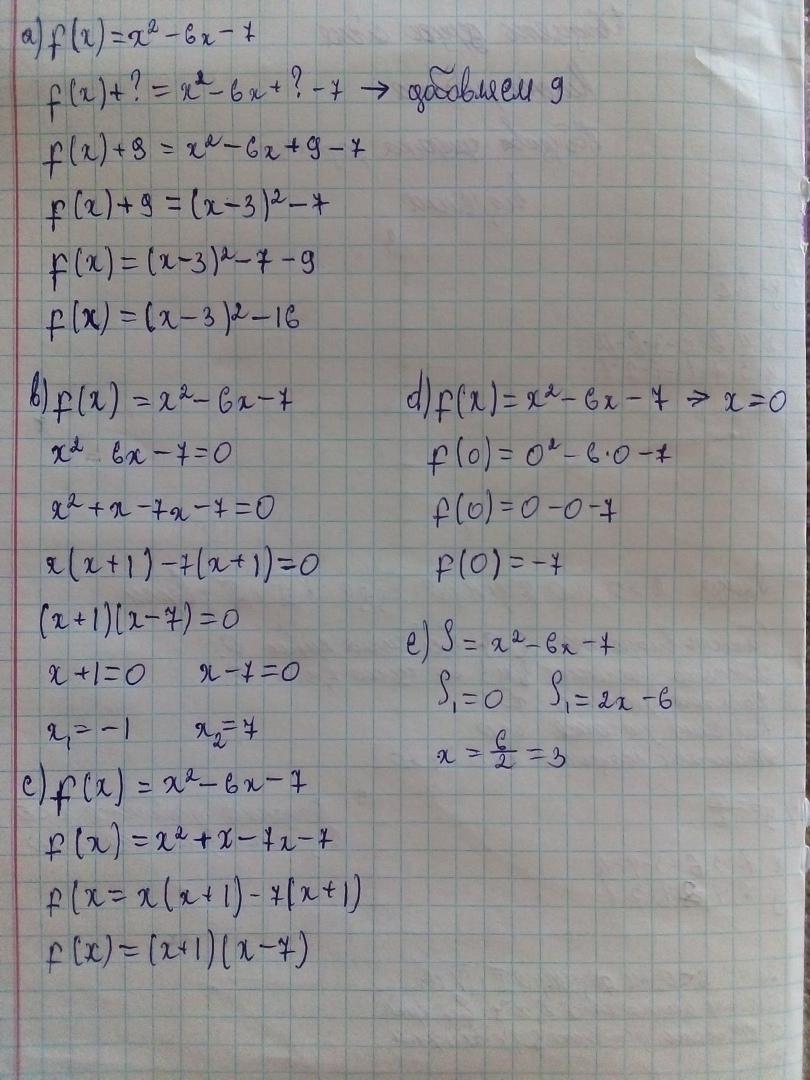 a) f(x) = x² - 6x - 7
f(x) + ? = x² - 6x + ? - 7 → добовляем 9
f(x) + 9 = x² - 6x + 9 - 7
f(x) + 9 = (x-3)² - 7
f(x) = (x-3)² - 7 - 9
f(x) = (x-3)² - 16
b) f(x) = x² - 6x - 7
x² 6x - 7 = 0
x² + x - 7x - 7 = 0
x(x+1) - 7(x+1) = 0
(x+1)(x-7) = 0
x+1=0 x-7=0
x₁ = -1 x₂ = 7
c) f(x) = x² - 6x - 7
f(x) = x² + x - 7x - 7
f(x = x(x+1) - 7(x+1)
f(x) = (x+1)(x-7)
d) f(x) = x² - 6x - 7 → x = 0
f(0) = 0² - 6·0 - 7
f(0) = 0 - 0 - 7
f(0) = -7
e) S = x² - 6x - 7
S₁ = 0 S₁ = 2x - 6
x = 6/2 = 3